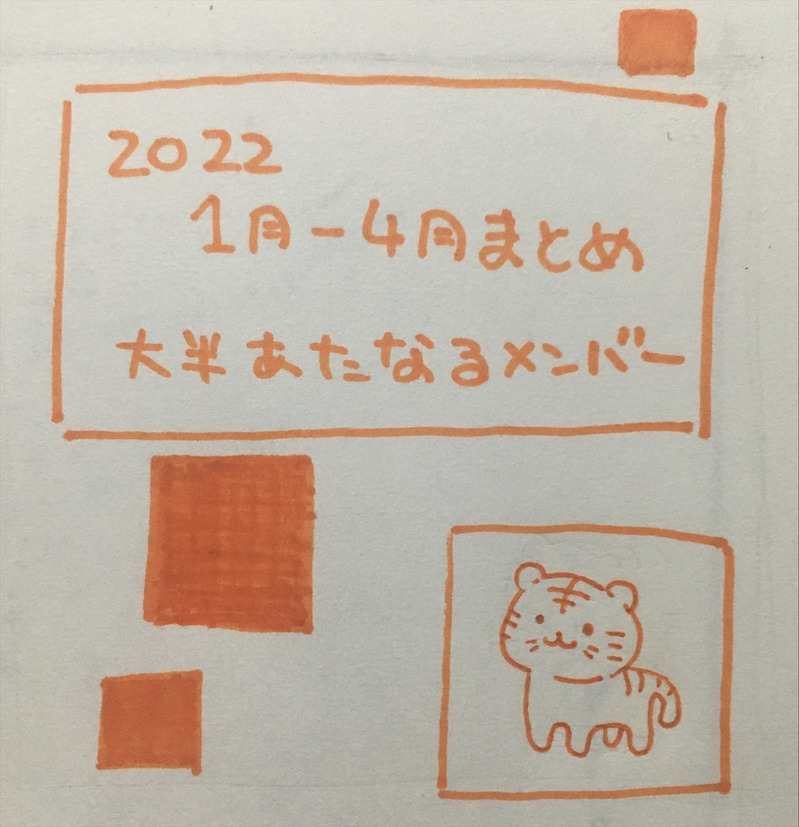 2022
1月-4月まとめ
大半あたなるメンバー